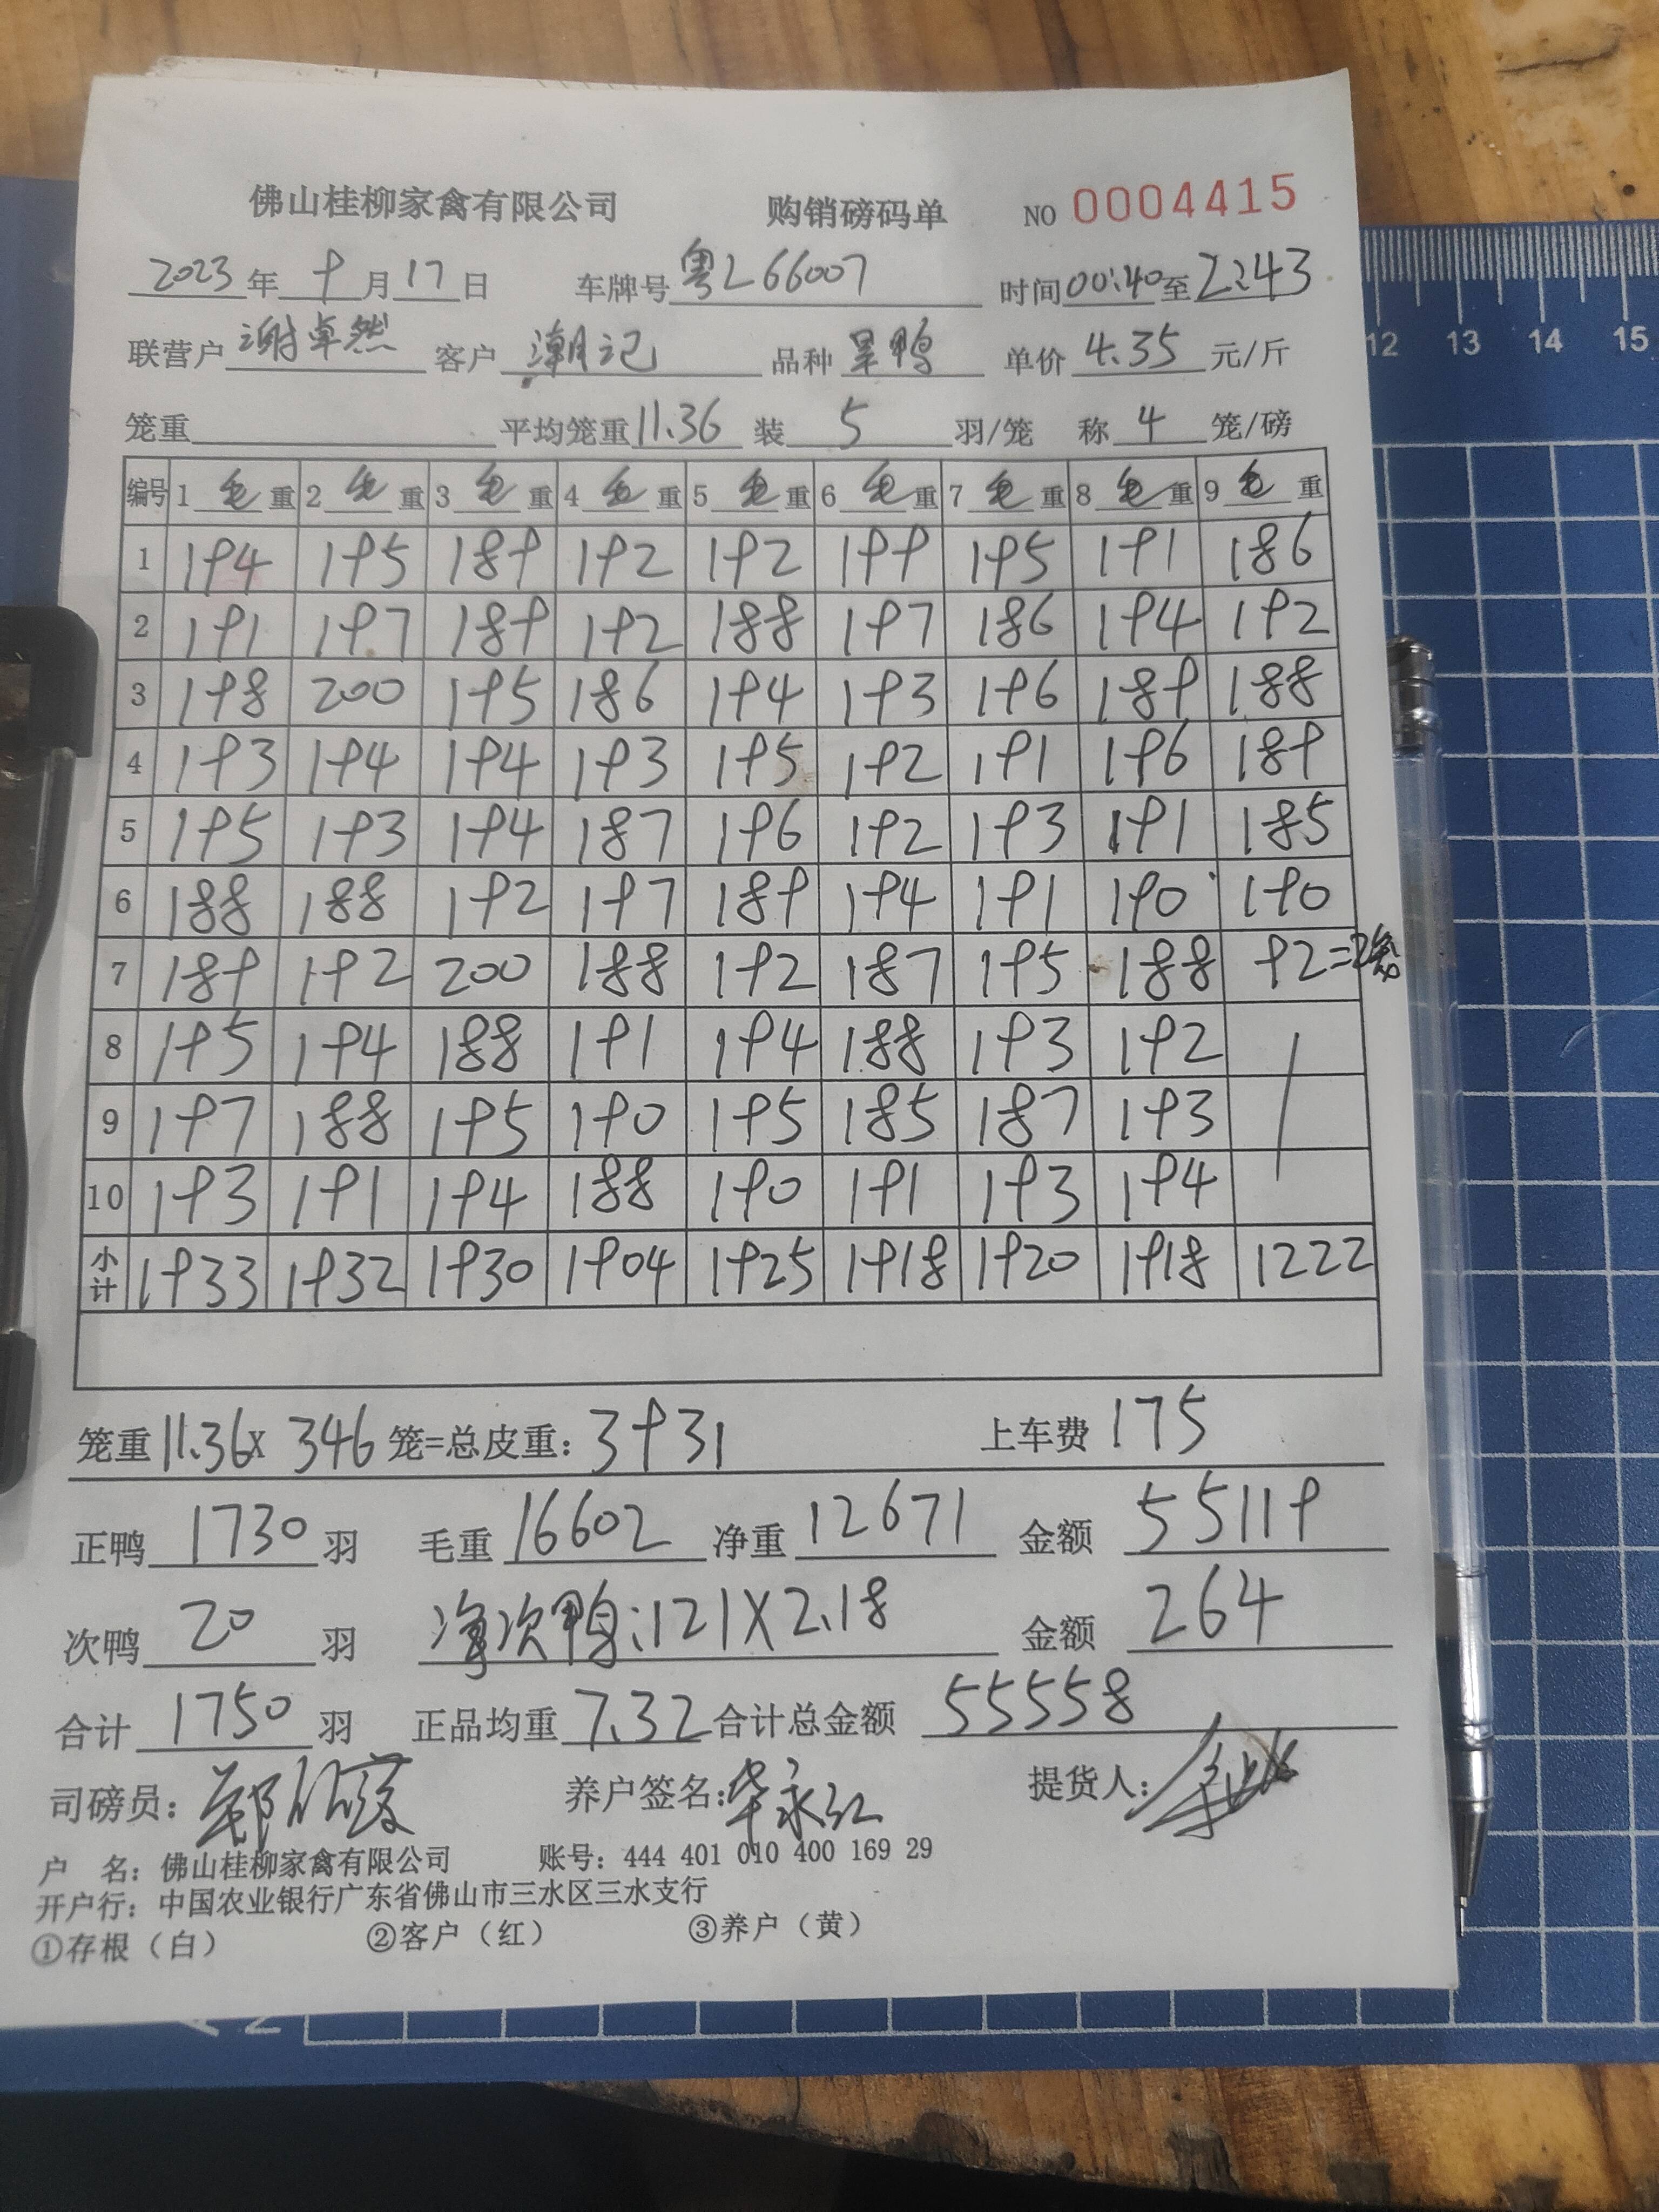 佛山桂柳家禽有限公司 购销磅码单 NO 0004415
2023年 9月17日 车牌号 粤L66007 时间00:40至2:43
联营户 谢卓然 客户 潮记 品种 旱鸭 单价 4.35 元/斤
笼重 平均笼重11.36 装 5 羽/笼 称 4 笼/磅
编号 1 毛 重 2 毛 重 3 毛 重 4 毛 重 5 毛 重 6 毛 重 7 毛 重 8 毛 重 9 毛 重
1 194 195 189 192 192 199 195 191 186
2 191 197 189 192 188 197 186 194 192
3 198 200 195 186 194 193 196 189 188
4 193 194 194 193 195 192 191 196 189
5 195 193 194 187 196 192 193 191 185
6 188 188 192 197 189 194 191 190 190
7 189 192 200 188 192 187 195 188 92=2笼
8 195 194 188 191 194 188 193 192
9 197 188 195 190 195 185 187 193
10 193 191 194 188 190 191 193 194
小计 1933 1932 1930 1904 1925 1918 1920 1918 1222
笼重11.36X 346 笼=总皮重: 3931 上车费 175
正鸭 1730 羽 毛重 16602 净重 12671 金额 55119
次鸭 20 羽 净次鸭:121X2.18 金额 264
合计 1750 羽 正品均重 7.32 合计总金额 55558
司磅员: 养户签名:华永红 提货人:
户 名: 佛山桂柳家禽有限公司 账号: 444 401 010 400 169 29
开户行: 中国农业银行广东省佛山市三水区三水支行
①存根（白） ②客户（红） ③养户（黄）
12 13 14 15
A2